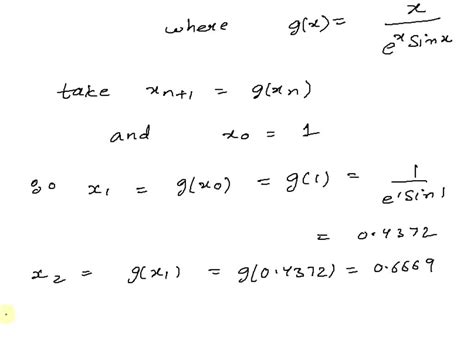 where g(x) = x / e^x Sinx
take x_{n+1} = g(x_n)
and x_0 = 1
so x_1 = g(x_0) = g(1) = 1 / e^1 Sin1
= 0.4372
x_2 = g(x_1) = g(0.4372) = 0.6669